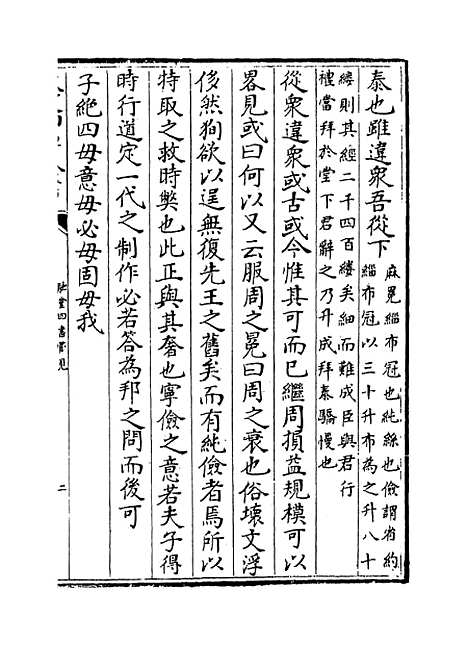 泰也雖違衆吾從下麻冕緇布冠也純絲也儉謂省約
緇布冠以三十升布為之升八十
縷則其經二千四百縷矣細而難成臣與君行
禮當拜於堂下君辭之乃升成拜泰驕慢也
從衆違衆或古或今惟其可而已繼周損益規模可以
畧見或曰何以又云服周之冕曰周之衰也俗壞文浮
侈然狥欲以逞無復先王之舊矣而有純儉者焉所以
特取之救時弊也此正與其奢也寧儉之意若夫子得
時行道定一代之制作必若答為邦之問而後可
子絶四毋意毋必毋固毋我
四書管見
二